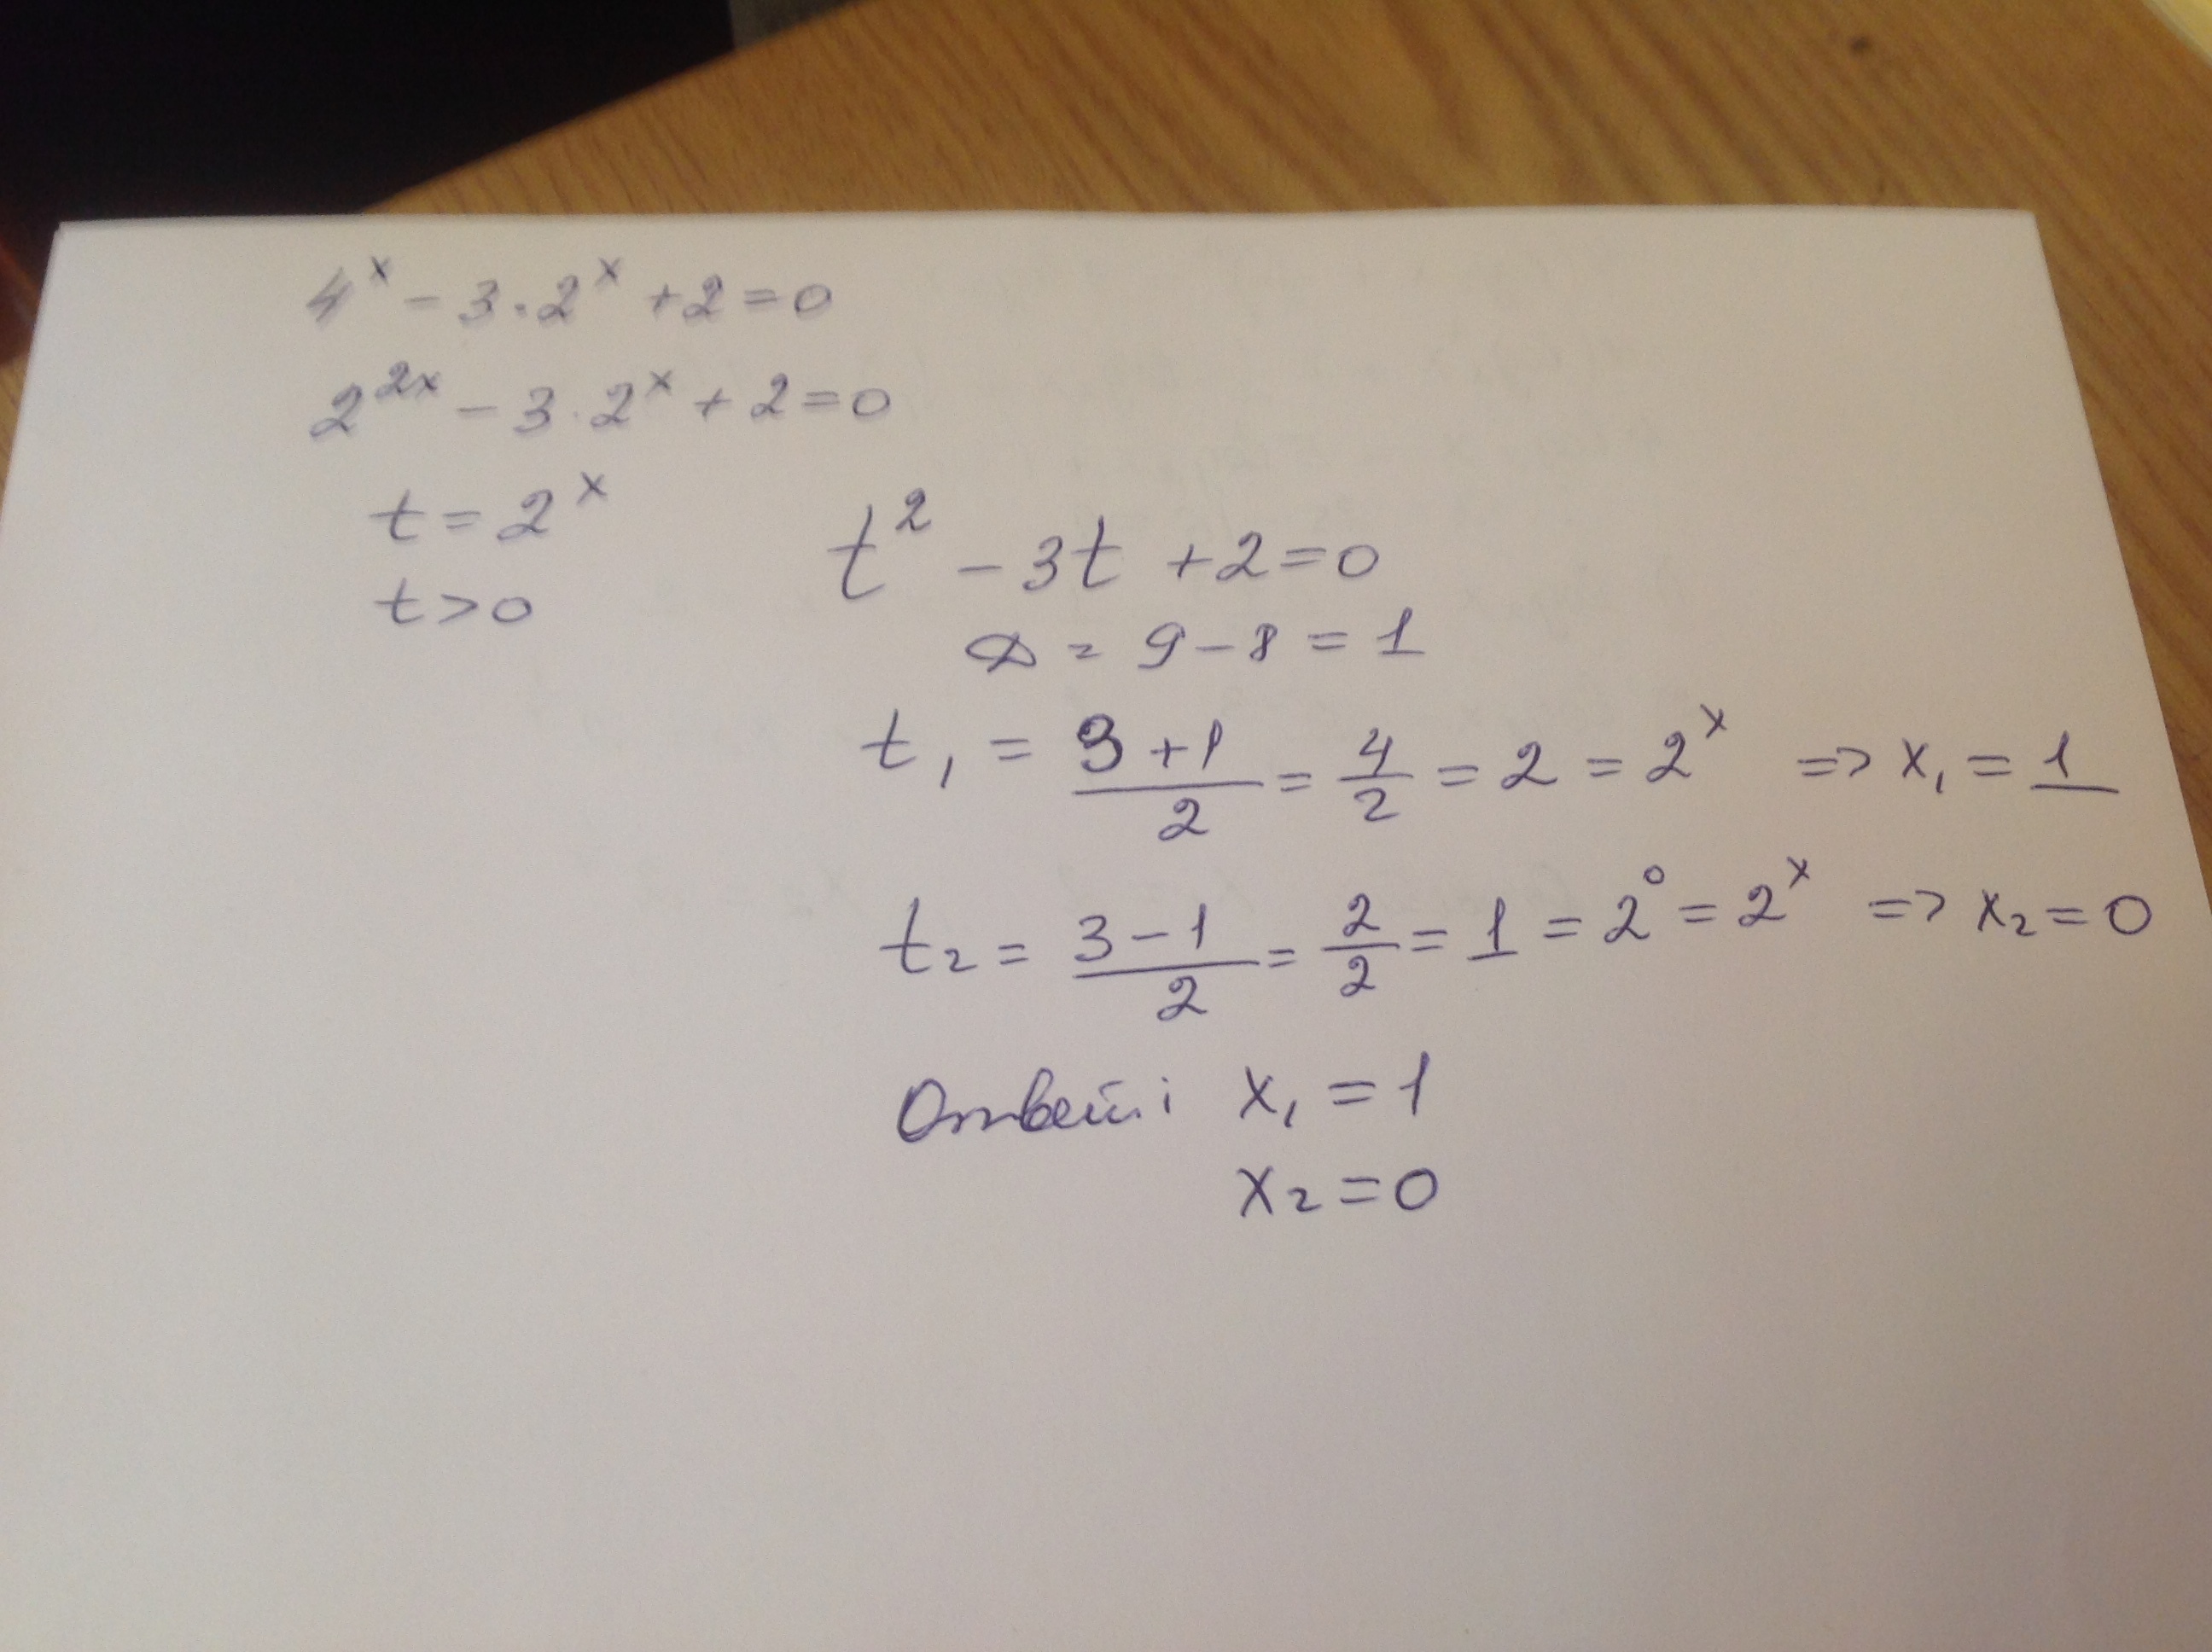 4ˣ - 3 · 2ˣ + 2 = 0
2²ˣ - 3 · 2ˣ + 2 = 0
t = 2ˣ
t > 0
t² - 3t + 2 = 0
D = 9 - 8 = 1
t₁ = (3 + 1)/2 = 4/2 = 2 = 2ˣ => x₁ = 1
t₂ = (3 - 1)/2 = 2/2 = 1 = 2⁰ = 2ˣ => x₂ = 0
Ответ: x₁ = 1
x₂ = 0